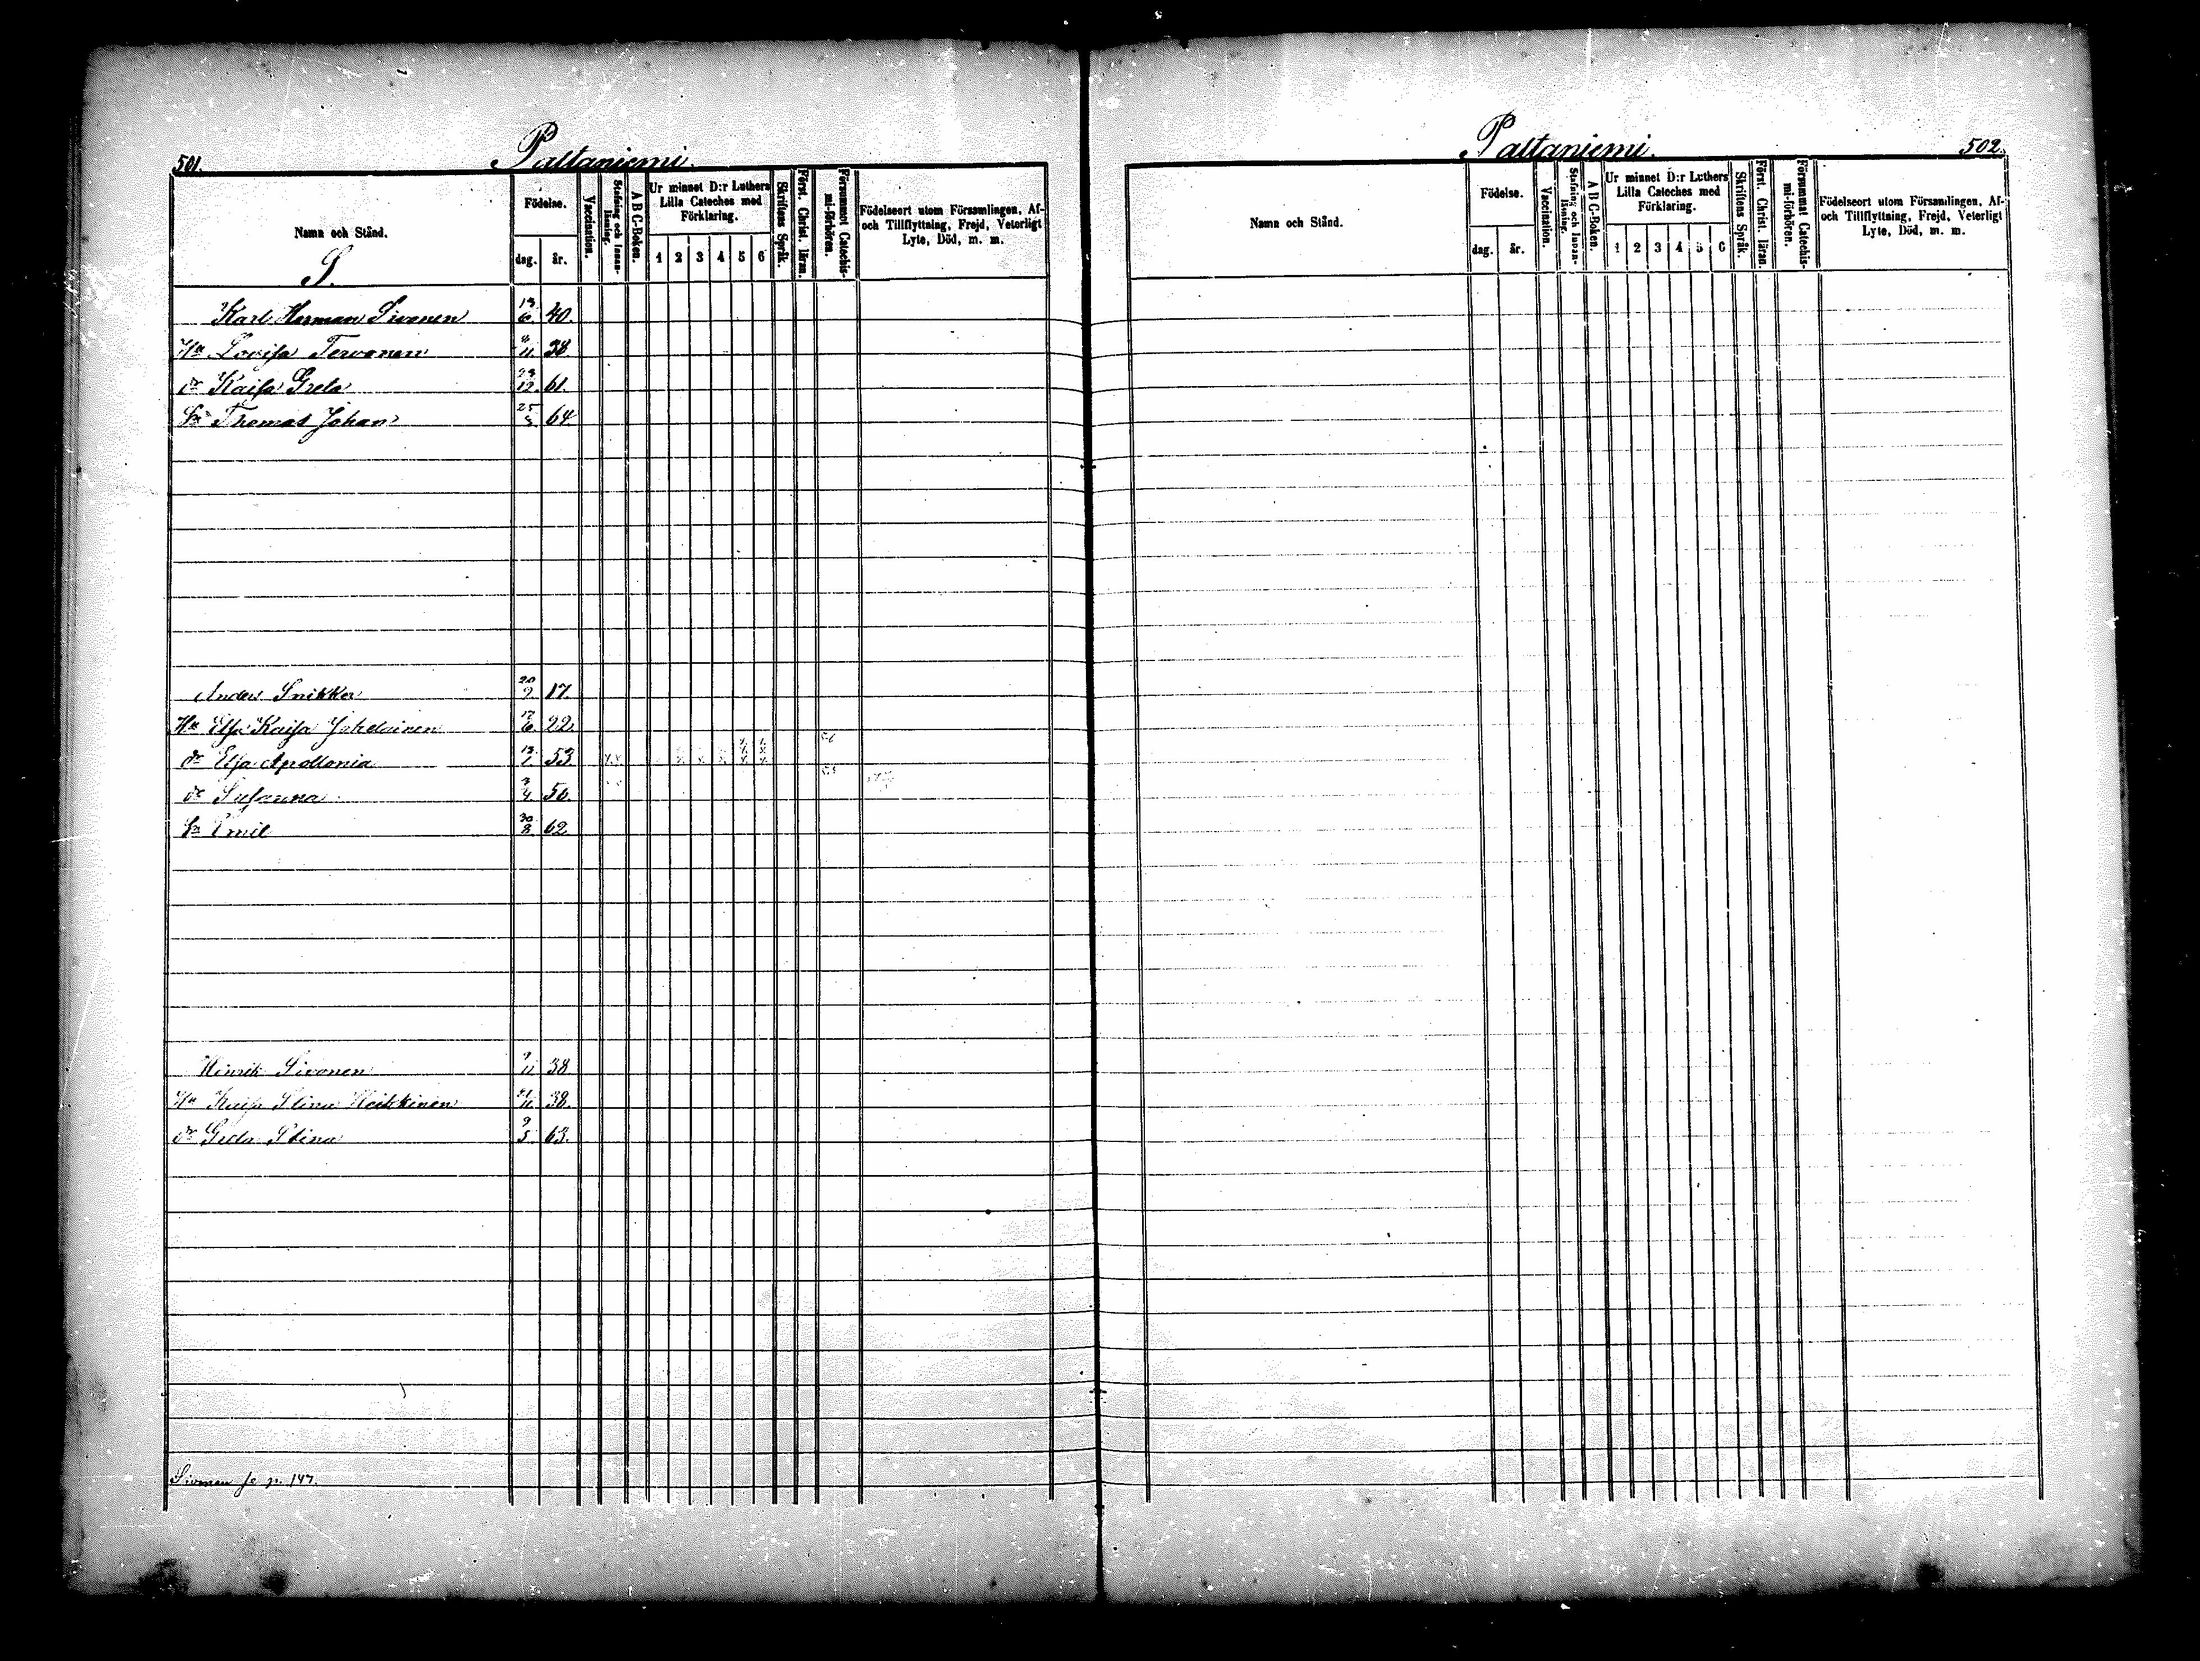 501.
Paltaniemi.
Namn och Stånd.
S.
Födelse.
dag.
år.
Vaccination.
Stafning och Innan-läsning.
A B C-Boken.
Ur minnet D:r Luthers
Lilla Cateches med
Förklaring.
1 2 3 4 5 6
Skriftens Språk.
Först. Christ. läran.
Försummat Catechis-
mi-förhören.
Födelseort utom Församlingen, Af-
och Tillflyttning, Frejd, Veterligt
Lyte, Död, m. m.
Karl Herman Sivonen 40.
Hu Lovisa Tervonen 38
dr Kaisa Greta 12 61.
Sn Thomas Johan 25 64
Anders Snikker 20 9 17.
Hu Elsa Kaisa 6. 22.
dr Elsa Apollonia 53
dr Susanna 56.
Sn Emil 30 8 62
Hinrik Sivonen 9 11 38
Hu Kaisa Stina Heikkinen 11 38.
dr Greta Stina 9 5 63.
Sivonen se p. 147.
Paltaniemi.
502.
Namn och Stånd.
Födelse.
dag.
år.
Vaccination.
Stafning och Innan-läsning.
A B C-Boken.
Ur minnet D:r Luthers
Lilla Cateches med
Förklaring.
1 2 3 4 5 6
Skriftens Språk.
Först. Christ. läran.
Försummat Catechis-
mi-förhören.
Födelseort utom Församlingen, Af-
och Tillflyttning, Frejd, Veterligt
Lyte, Död, m. m.